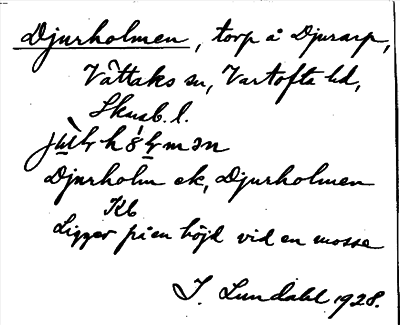 Djurholmen, torp å Djurarp,
Vättaks sn, Vartofta hd,
Skarab. l.
Djurholm ek, Djurholmen
Kb
Ligger på en höjd vid en mosse
I. Lundahl 1928.